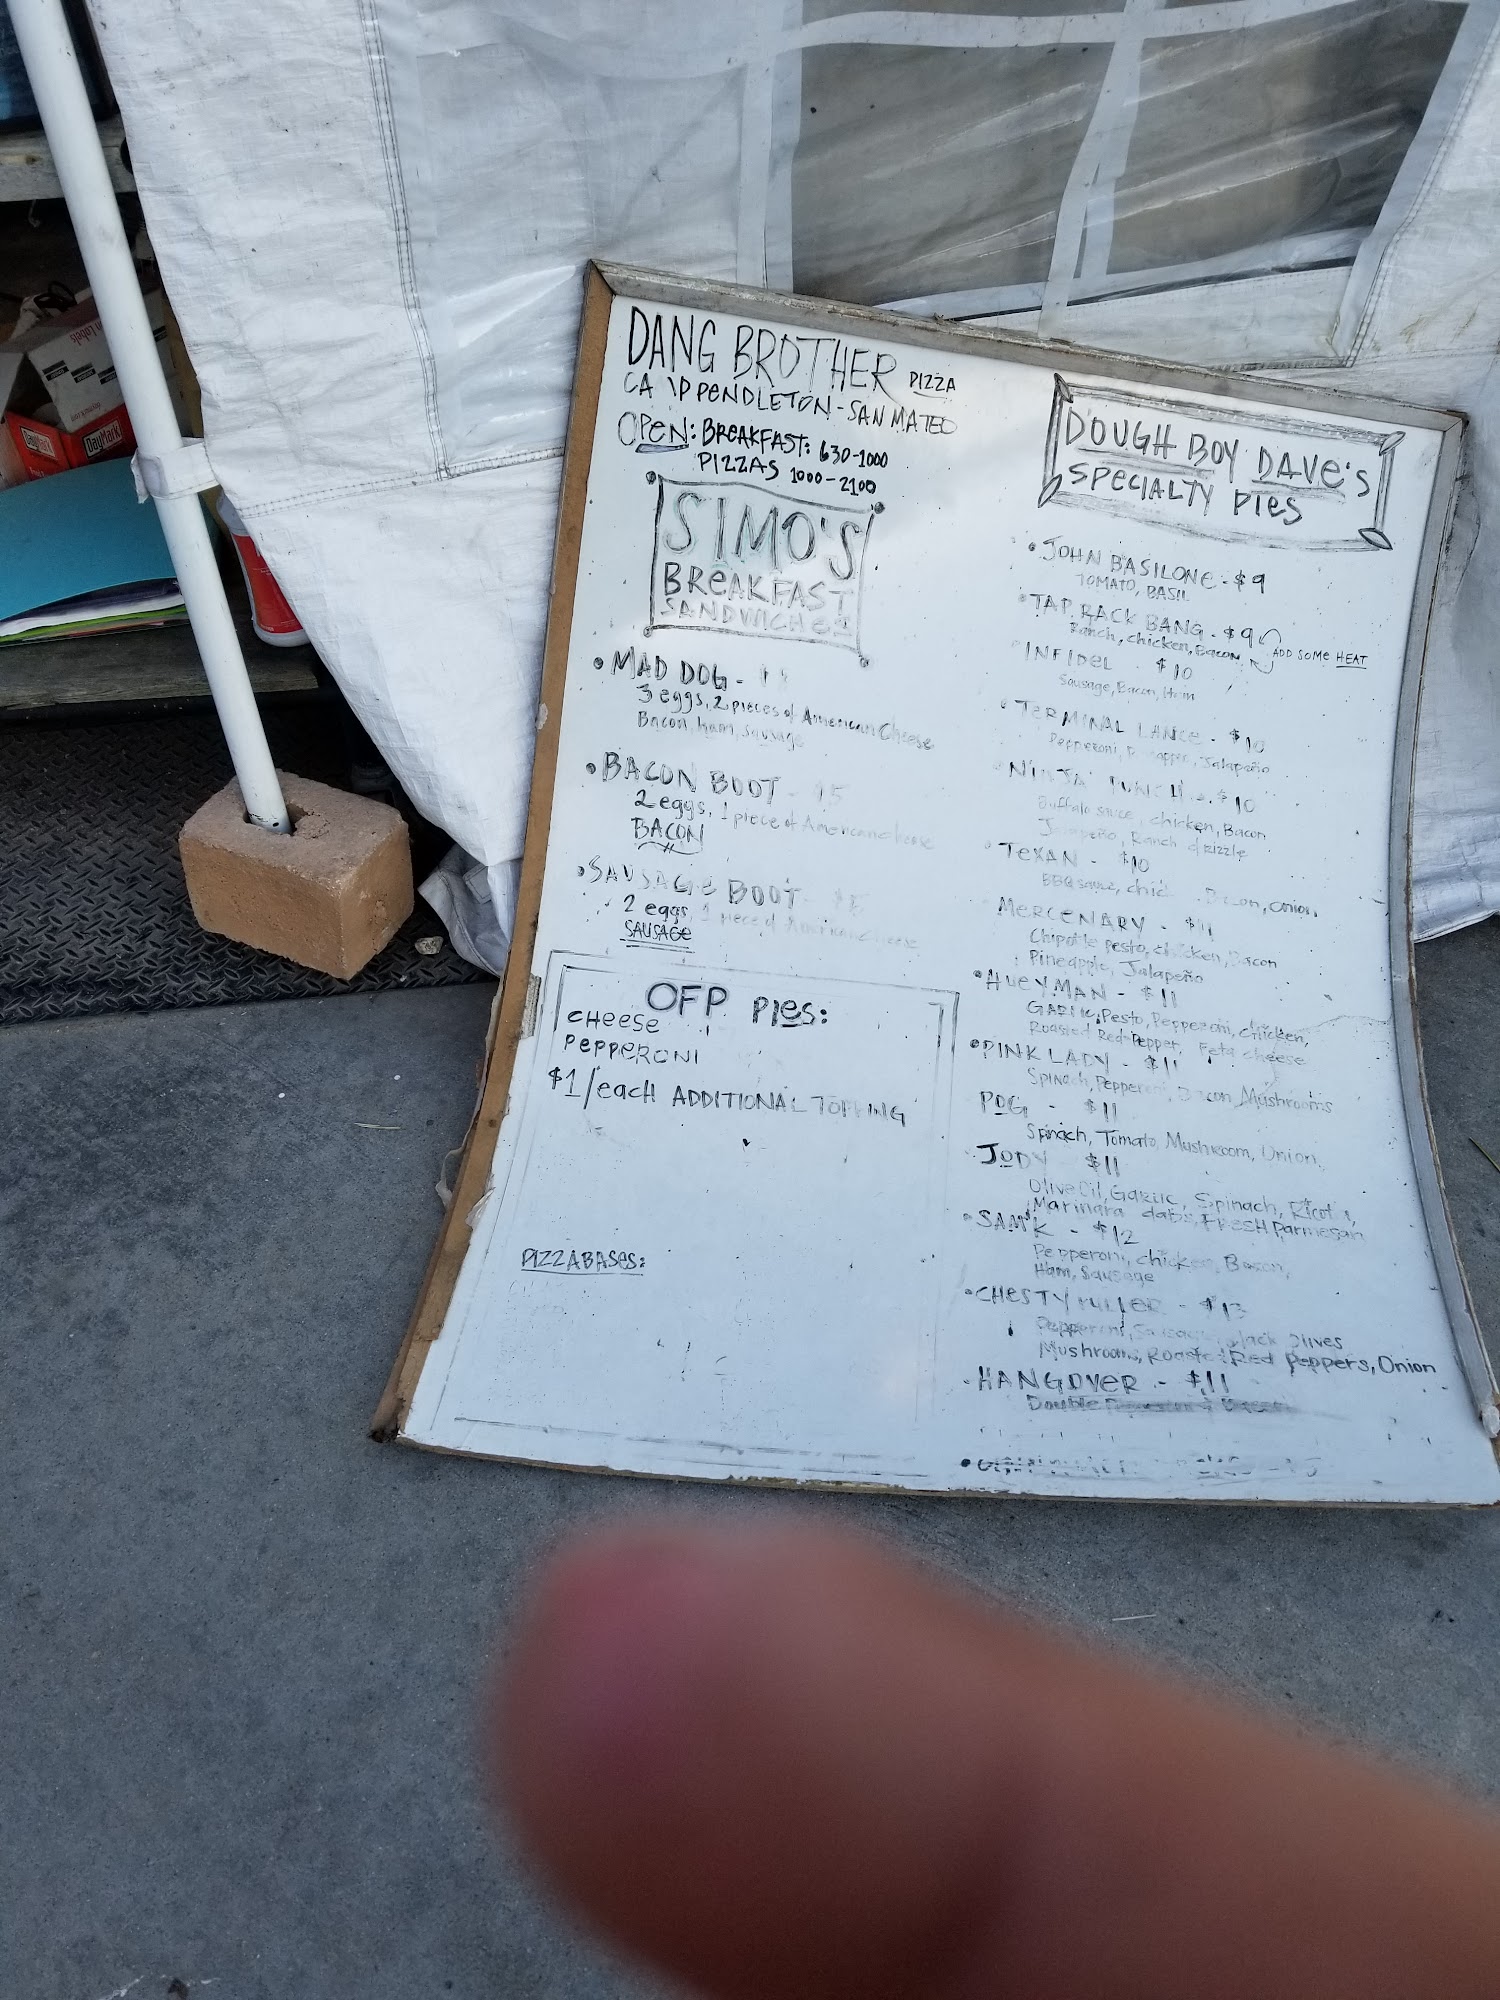 DANG BROTHER PIZZA
CA PENDLETON - SAN MATEO
OPEN: BREAKFAST: 630-1000
PIZZAS 1000-2100
SIMO'S
BREAKFAST
SANDWICHES
• MAD DOG -
3 eggs, 2 pieces of American Cheese
Bacon, ham, sausage
• BACON BOOT -
2 eggs, 1 piece of American cheese
BACON
• SAUSAGE BOOT -
2 eggs, 1 piece of American cheese
SAUSAGE
OFP PIES:
CHEESE
PEPPERONI
$1/each ADDITIONAL TOPPING
PIZZA BASES:
DOUGH BOY DAVE'S
SPECIALTY PIES
• JOHN BASILONE - $9
TOMATO, BASIL
• TAP RACK BANG - $9
Ranch, chicken, Bacon
ADD SOME HEAT
• INFIDEL - $10
Sausage, Bacon, Ham
• TERMINAL LANCE - $10
Pepperoni, Jalapeño
• NINJA PUNCH - $10
Buffalo sauce, chicken, Bacon
Jalapeño, Ranch drizzle
• TEXAN - $10
BBQ sauce, Bacon, onion
MERCENARY - $11
Chipotle pesto, chicken, Bacon
Pineapple, Jalapeño
• HUEYMAN - $11
GARLIC, Pesto, Pepperoni, chicken,
Roasted Red Pepper, Feta cheese
• PINK LADY - $11
Spinach, Pepperoni, Bacon Mushrooms
POG - $11
Spinach, Tomato, Mushroom, Onion
JODY $11
Olive Oil, Garlic, Spinach, Ricotta,
Marinara dabs, FRESH Parmesan
• SAM'K - $12
Pepperoni, chicken, Bacon,
Ham, Sausage
• CHESTY PULLER - $13
Pepperoni, Sausage, Black Olives
Mushrooms, Roasted Red Peppers, Onion
• HANGOVER - $11
Double
DayMark
DayMark
Labels